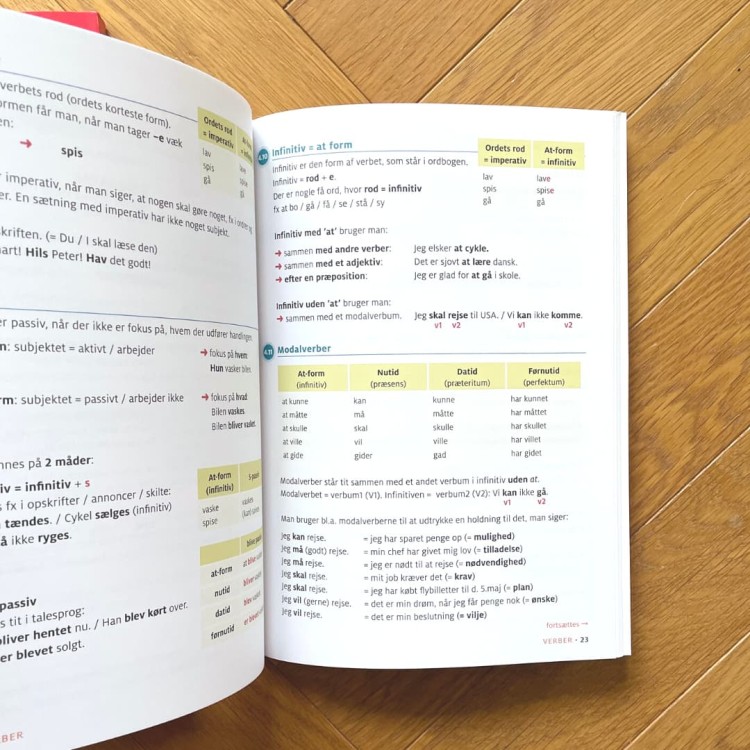 verbets rod (ordets korteste form).
ormen får man, når man tager –e væk
en:
➔ spis
Ordets rod
= imperativ
lav
spis
gå
imperativ, når man siger, at nogen skal gøre noget, fx i
er. En sætning med imperativ har ikke noget subjekt.
kriften. (= Du / I skal læse den)
art! Hils Peter! Hav det godt!
er passiv, når der ikke er fokus på, hvem der udfører handlingen.
rm: subjektet = aktivt / arbejder
➔ fokus på hvem
Hun vasker bilen
rm: subjektet = passivt / arbejder ikke
➔ fokus på hvad
Bilen vaskes.
Bilen bliver vasket.
nnes på 2 måder:
iv = infinitiv + s
s fx i opskrifter / annoncer / skilte:
tændes. / Cykel sælges (infinitiv)
å ikke ryges.
At-form
(infinitiv)
vaske vaskes
spise
at-form
nutid
datid
førnutid
passiv
s tit i talesprog:
bliver hentet nu. / Han blev kørt over.
er blevet solgt.
RBER
4.10 Infinitiv = at form
Infinitiv er den form af verbet, som står i ordbogen.
Infinitiv = rod + e.
Der er nogle få ord, hvor rod = infinitiv
fx at bo / gå / få / se / stå / sy
Ordets rod At-form
= imperativ = infinitiv
lav lave
spis spise
gå gå
Infinitiv med 'at' bruger man:
➔ sammen med andre verber: Jeg elsker at cykle.
➔ sammen med et adjektiv: Det er sjovt at lære dansk.
➔ efter en præposition: Jeg er glad for at gå i skole.
Infinitiv uden 'at' bruger man:
➔ sammen med et modalverbum. Jeg skal rejse til USA. / Vi kan ikke komme.
v1 v2 v1 v2
4.11 Modalverber
At-form Nutid Datid Førnutid
(infinitiv) (præsens) (præteritum) (perfektum)
at kunne kan kunne har kunnet
at måtte må måtte har måttet
at skulle skal skulle har skullet
at ville vil ville har villet
at gide gider gad har gidet
Modalverber står tit sammen med et andet verbum i infinitiv uden at.
Modalverbet = verbum1 (V1), Infinitiven = verbum2 (V2): Vi kan ikke gå.
v1 v2
Man bruger bl.a. modalverberne til at udtrykke en holdning til det, man siger:
Jeg kan rejse. = jeg har sparet penge op (= mulighed)
Jeg må (godt) rejse. = min chef har givet mig lov (= tilladelse)
Jeg må rejse. = jeg er nødt til at rejse (= nødvendighed)
Jeg skal rejse. = mit job kræver det (= krav)
Jeg skal rejse. = jeg har købt flybilletter til d. 5.maj (= plan)
Jeg vil (gerne) rejse. = det er min drøm, når jeg får penge nok (= ønske)
Jeg vil rejse. = det er min beslutning (= vilje)
fortsættes →
VERBER • 23